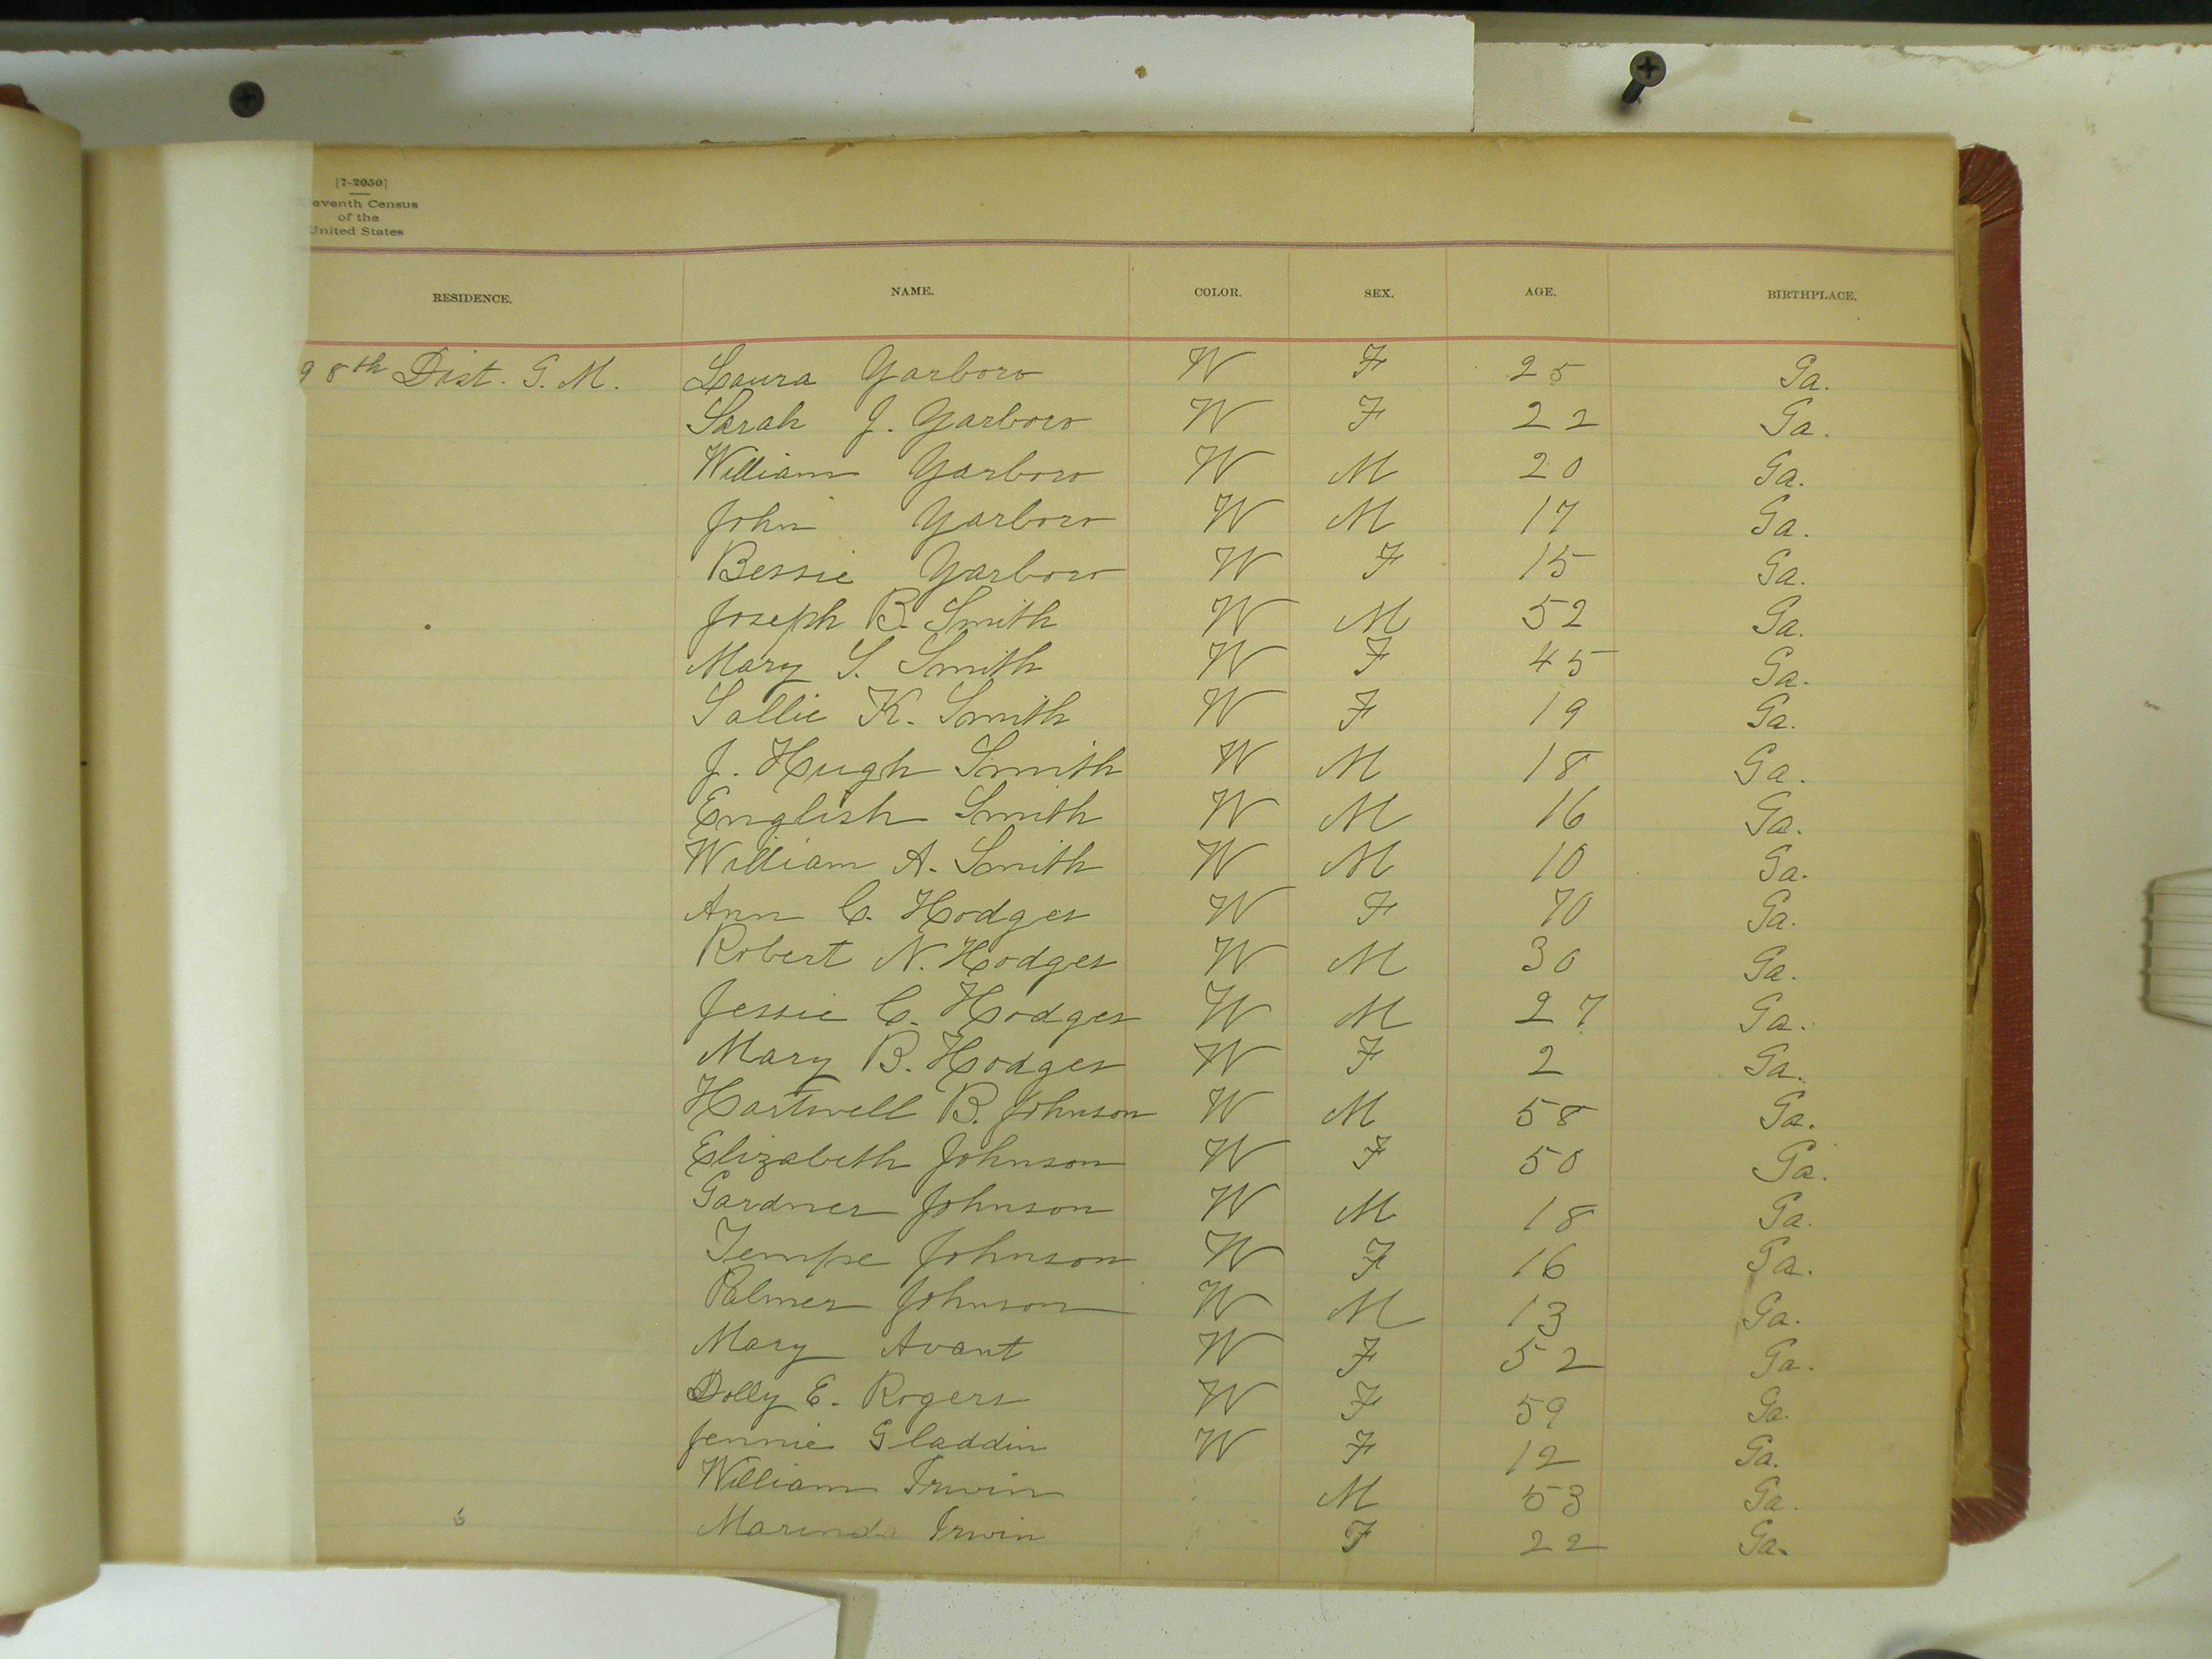 [7-2050]
eventh Census
of the
United States
RESIDENCE. NAME. COLOR. SEX. AGE. BIRTHPLACE.
98th Dist. G. M. Laura Yarboro W F 25 Ga.
Sarah J. Yarboro W F 22 Ga.
William Yarboro W M 20 Ga.
John Yarboro W M 17 Ga.
Bessie Yarboro W F 15 Ga.
Joseph B. Smith W M 52 Ga.
Mary S. Smith W F 45 Ga.
Sallie K. Smith W F 19 Ga.
J. Hugh Smith W M 18 Ga.
English Smith W M 16 Ga.
William A. Smith W M 10 Ga.
Ann C. Hodges W F 70 Ga.
Robert N. Hodges W M 30 Ga.
Jessie C. Hodges W M 27 Ga.
Mary B. Hodges W F 2 Ga.
Hartwell B. Johnson W M 58 Ga.
Elizabeth Johnson W F 50 Ga.
Gardner Johnson W M 18 Ga.
Tempe Johnson W F 16 Ga.
Palmer Johnson W M 13 Ga.
Mary Avant W F 52 Ga.
Dolly E. Rogers W F 59 Ga.
Jennie Gladdin W F 12 Ga.
William Irwin M 53 Ga.
Marinda Irwin F 22 Ga.